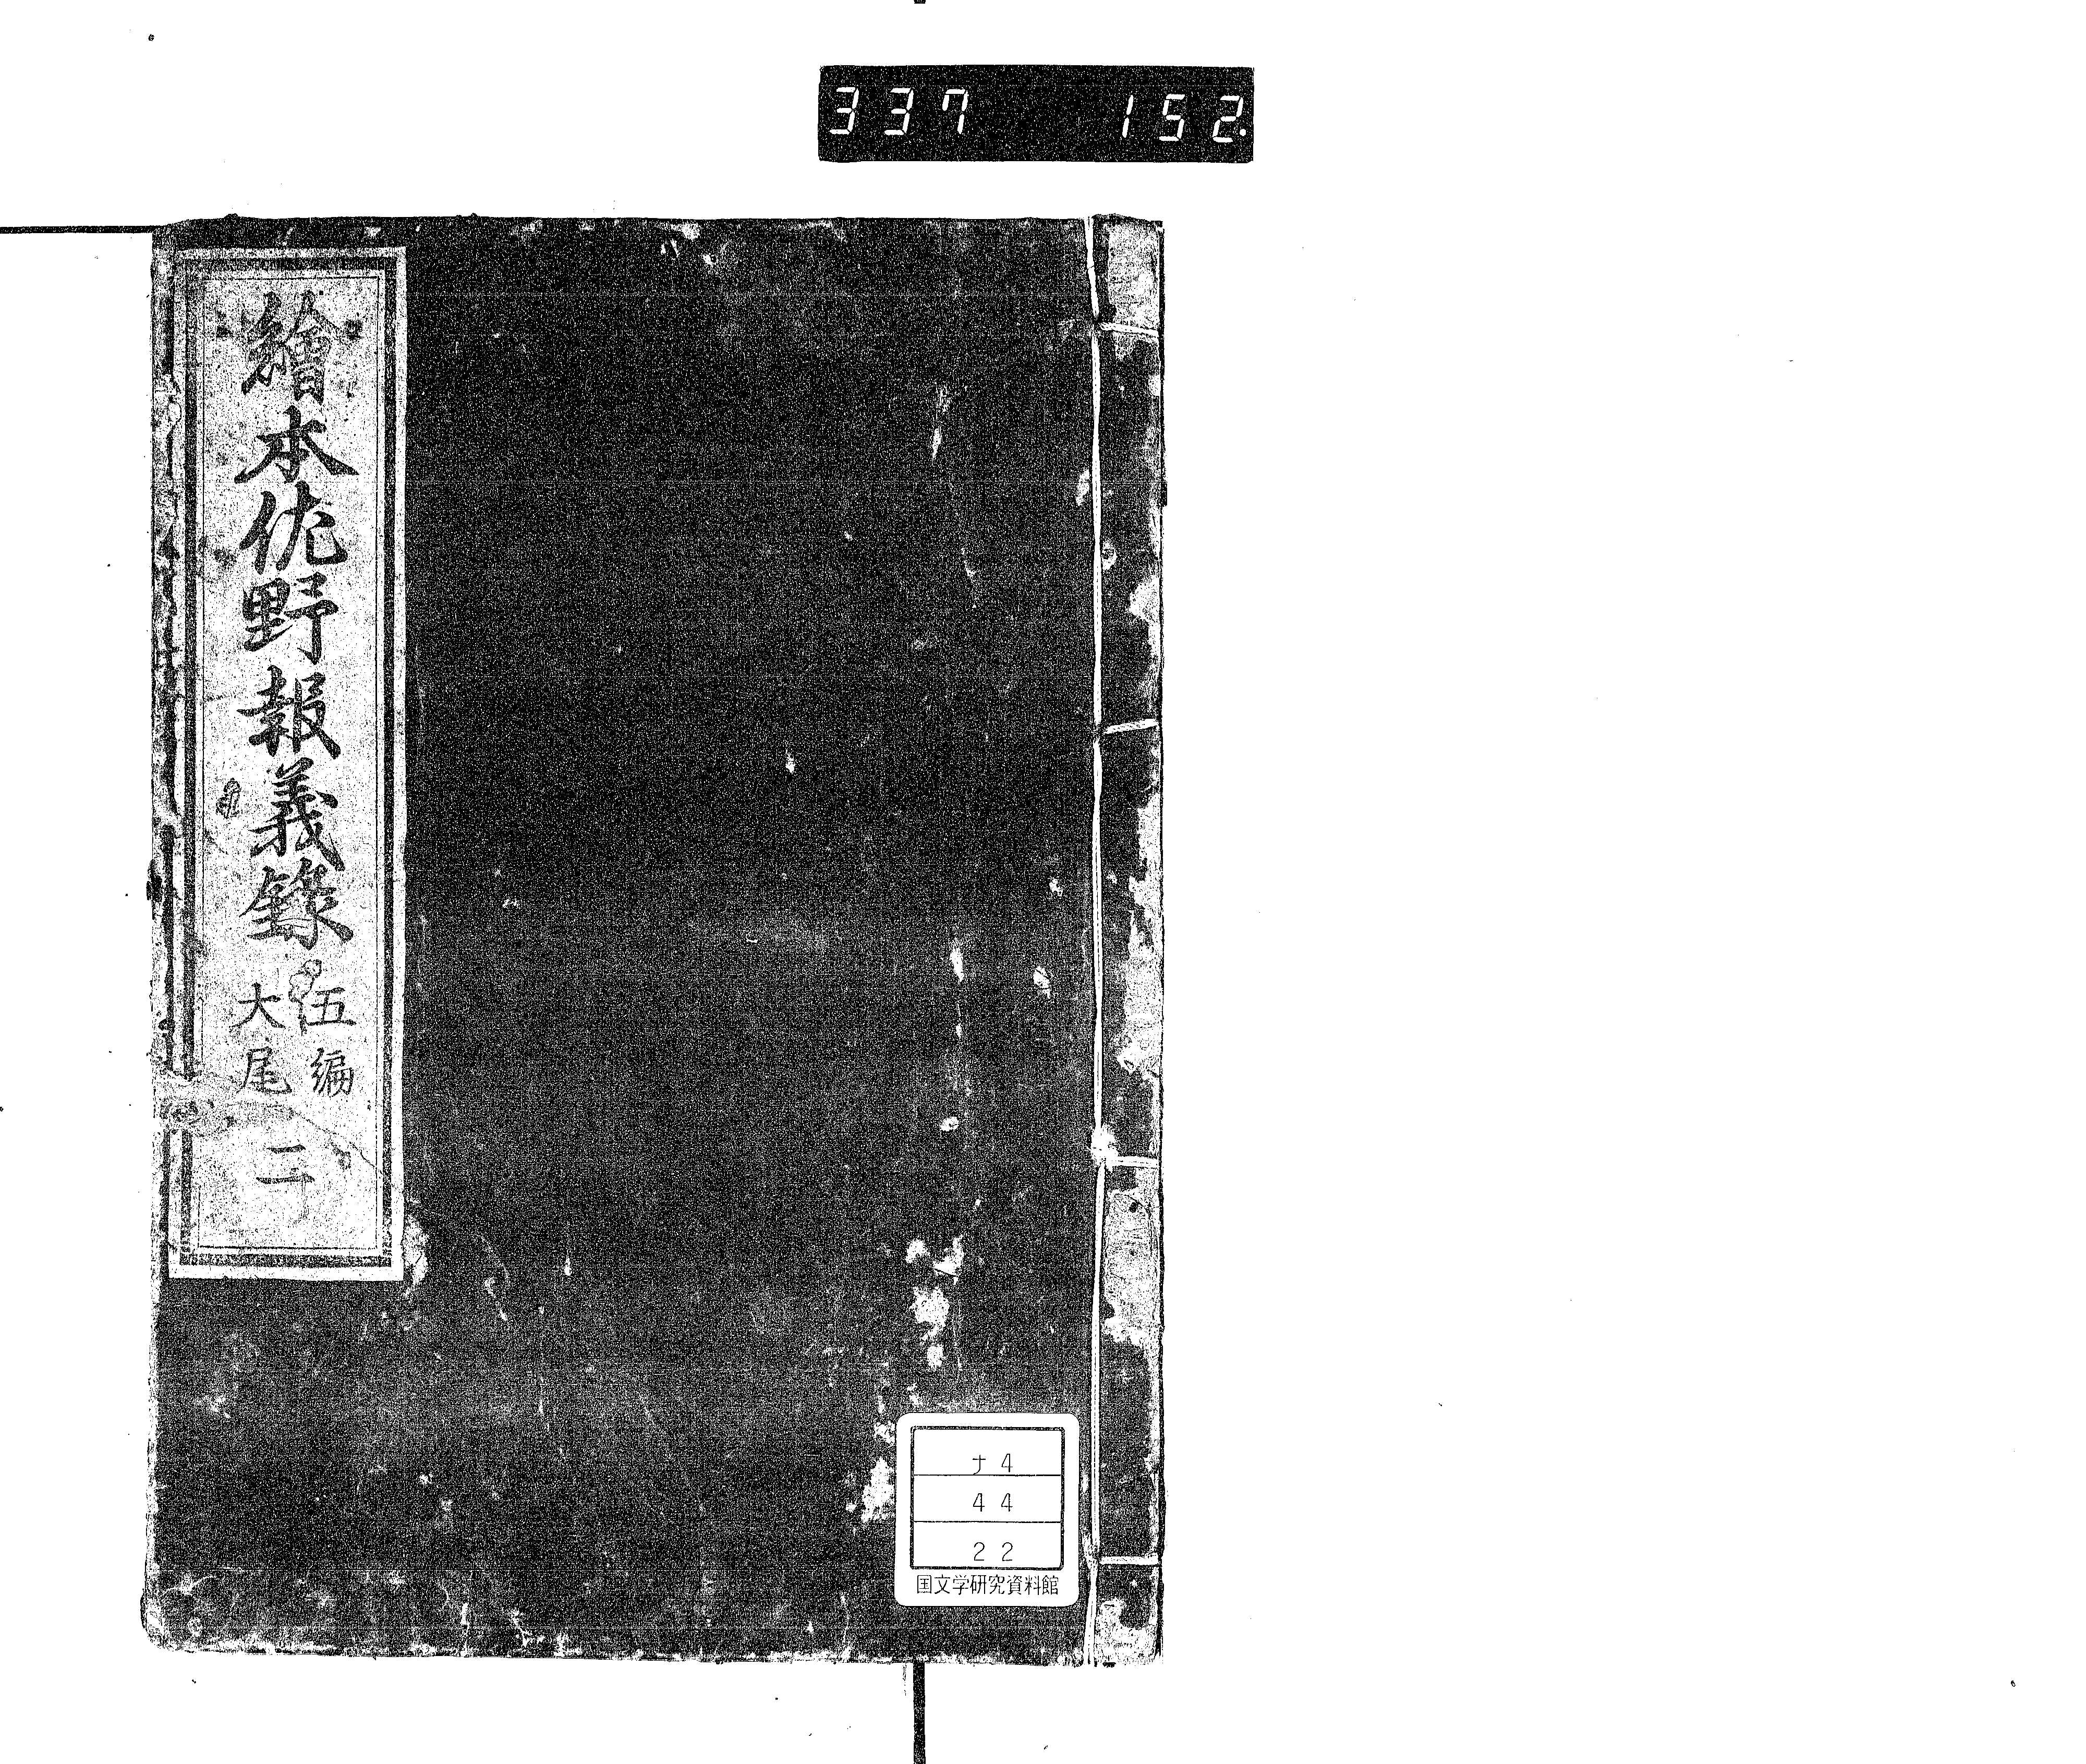 337 152.
繪本佐野報義錄
伍編
大尾
二
ナ4
44
22
国文学研究資料館